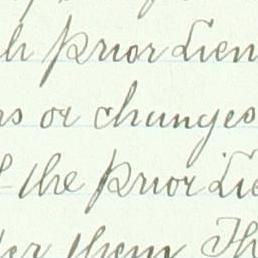 h prior Lien
s or changes
the prior Lie
them Th